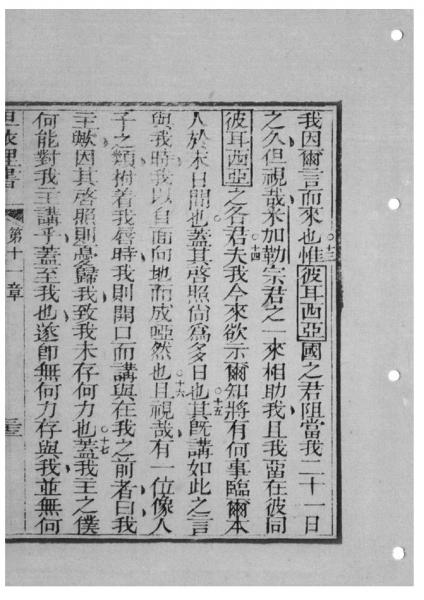 我因爾言而來也○十三惟彼耳西亞國之君阻當我二十一日
之久但視哉米加勒宗君之一來相助我且我留在彼同
彼耳西亞之各君○十四夫我今來欲示爾知將有何事臨爾本
人於末日間也蓋其啓照尚為多日也○十五其既講如此之言
與我時我以自面向地而成啞然也○十六且視哉有一位像人
子之類拊着我唇時我則開口而講與在我之前者曰我
主歟因其啓照則憂歸我致我未存何力也○十七蓋我主之僕
何能對我主講乎蓋至我也遂即無何力存與我並無何
第十一章